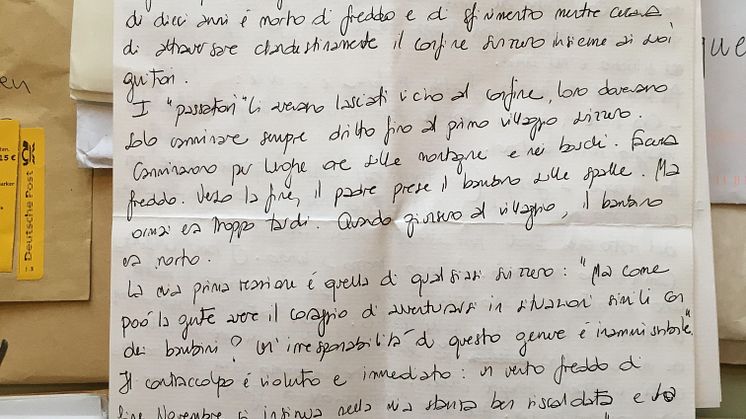 di dieci anni è morto di freddo e di sfinimento mentre cercava
di attraversare clandestinamente il confine svizzero insieme ai suoi
genitori.
I "passatori" li avevano lasciati vicino al confine, loro dovevano
solo camminare sempre dritto fino al primo villaggio svizzero.
Camminarono per lunghe ore sulle montagne e nei boschi. Faceva
freddo. Verso la fine, il padre prese il bambino sulle spalle. Ma
ormai era troppo tardi. Quando giunsero al villaggio, il bambino
era morto.
La mia prima reazione è quella di qualsiasi svizzero: "Ma come
può la gente avere il coraggio di avventurarsi in situazioni simili con
dei bambini? Un'irresponsabilità di questo genere è inammissibile".
Il contraccolpo è violento e immediato: un vento freddo di
fine Novembre si insinua nella mia stanza ben riscaldata e
Deutsche Post
en
que